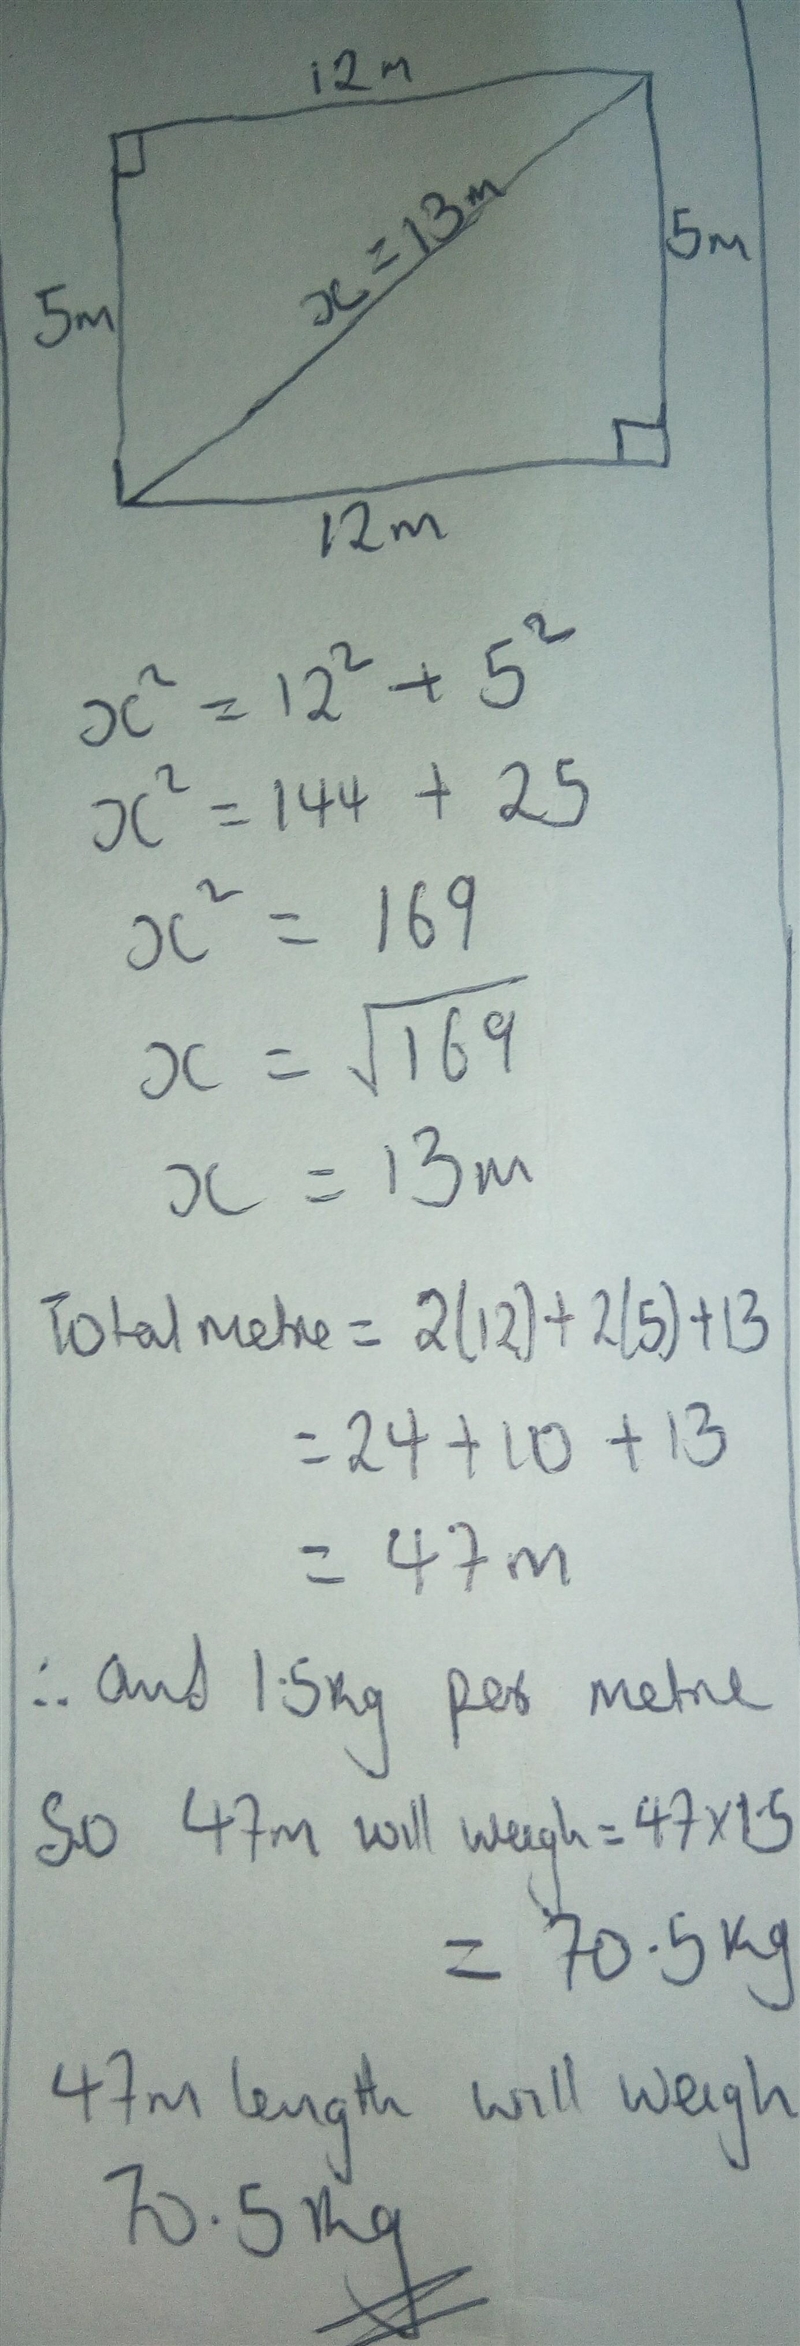 12m
x = 13m
5m
5m
12m
x² = 12² + 5²
x² = 144 + 25
x² = 169
x = √169
x = 13m
Total metre = 2(12) + 2(5) + 13
= 24 + 10 + 13
= 47m
∴ and 1.5kg per metre
So 47m will weigh = 47 × 1.5
= 70.5kg
47m length will weigh
70.5kg